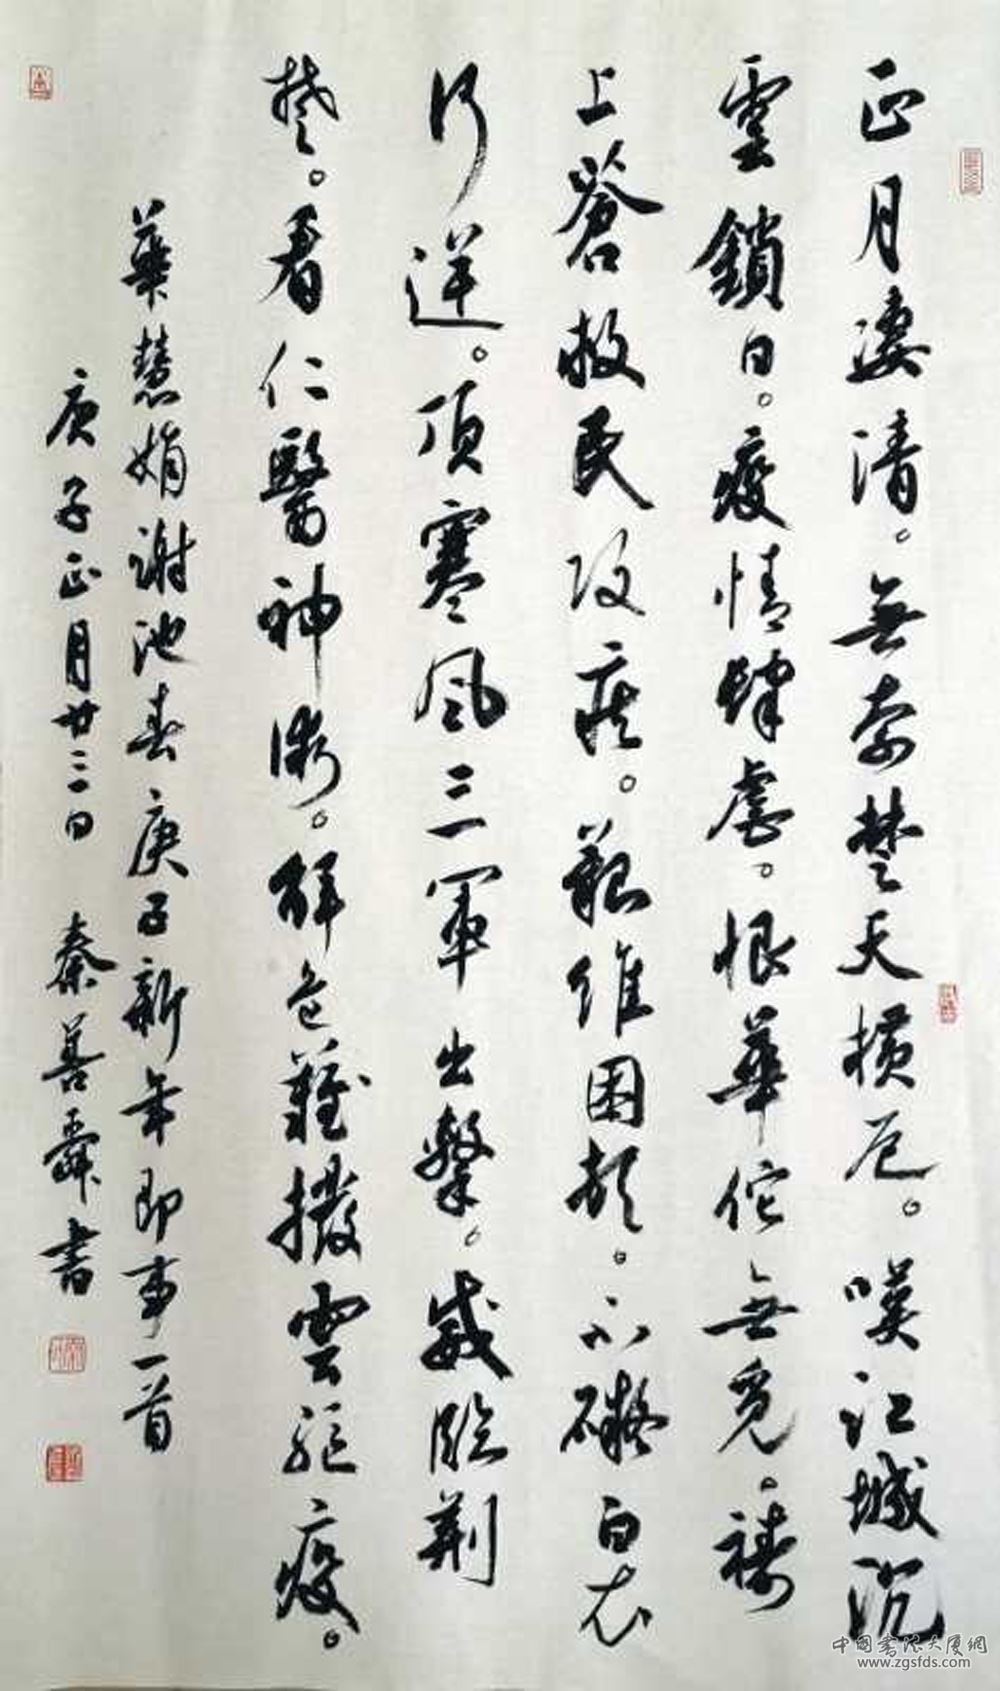 正月凄清。無奈楚天横厄。嘆江城沉
雲鎖日。疫情肆虐。恨華佗無覓。禱
上蒼救民攻疾。艱維困頓。不礙白衣
行逆。頂寒風三軍出擊。威臨荆
楚。看仁醫神術。解危難撥雲驅疫。
葉慧娟謝池春庚子新年即事一首
庚子正月廿三日 秦善舜書
中国書法大厦網
www.zgsfds.com